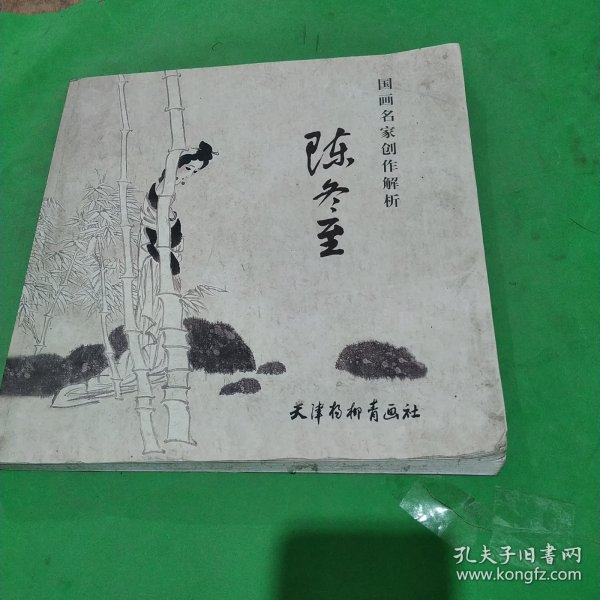 国画名家创作解析
陈冬至
天津杨柳青画社
孔夫子旧书网
www.kongfz.com